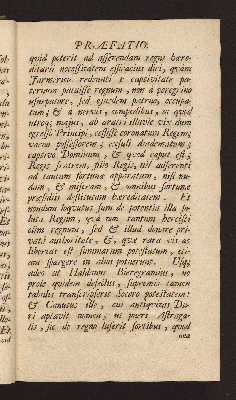 PRÆFATIO.
quid poterit ad asserendam regni hære-
ditarii necessitatem efficacius dici, quàm
Jarmerico redeunti è captivitate pa-
ternum patuisse regnum, non à peregrino
usurpatore, sed ejusdem patruo, occupa-
tum; & à nervis, compedibus, ac quod
utroq; majus, ab aratri illuvie vix dum
egresso Principi, cessisse coronatum Regem;
vacuo possessorem; exsuli diadematum;
captivo Dominum, & quod caput est;
Regis fratrem, filio Regis, nil afferenti
ad tantum fortunæ apparatum, nisi nu-
dam, & miseram, & omnibus fortunæ
præsidiis destitutam hæreditatem. Et
nondum loqvutus sum de potentia illa so-
luta Regum, quâ non tantum hercisci
olim regnum, sed & illud donare pri-
vatâ autoritate, &, quæ rara vis ac
libertas est summarum potestatum, eti-
am spargere in alios potuerunt. Usq;
adeo ut Haldanus Bieregramius, ubi
prole quidem desectus, supremis tamen
tabulis transcripserit Socero potestatem:
& Canutus ille, cui antiquitas Du-
ri aptavit nomen, ut pueri Astraga-
lis, sic de regno luserit sortibus, quod
una